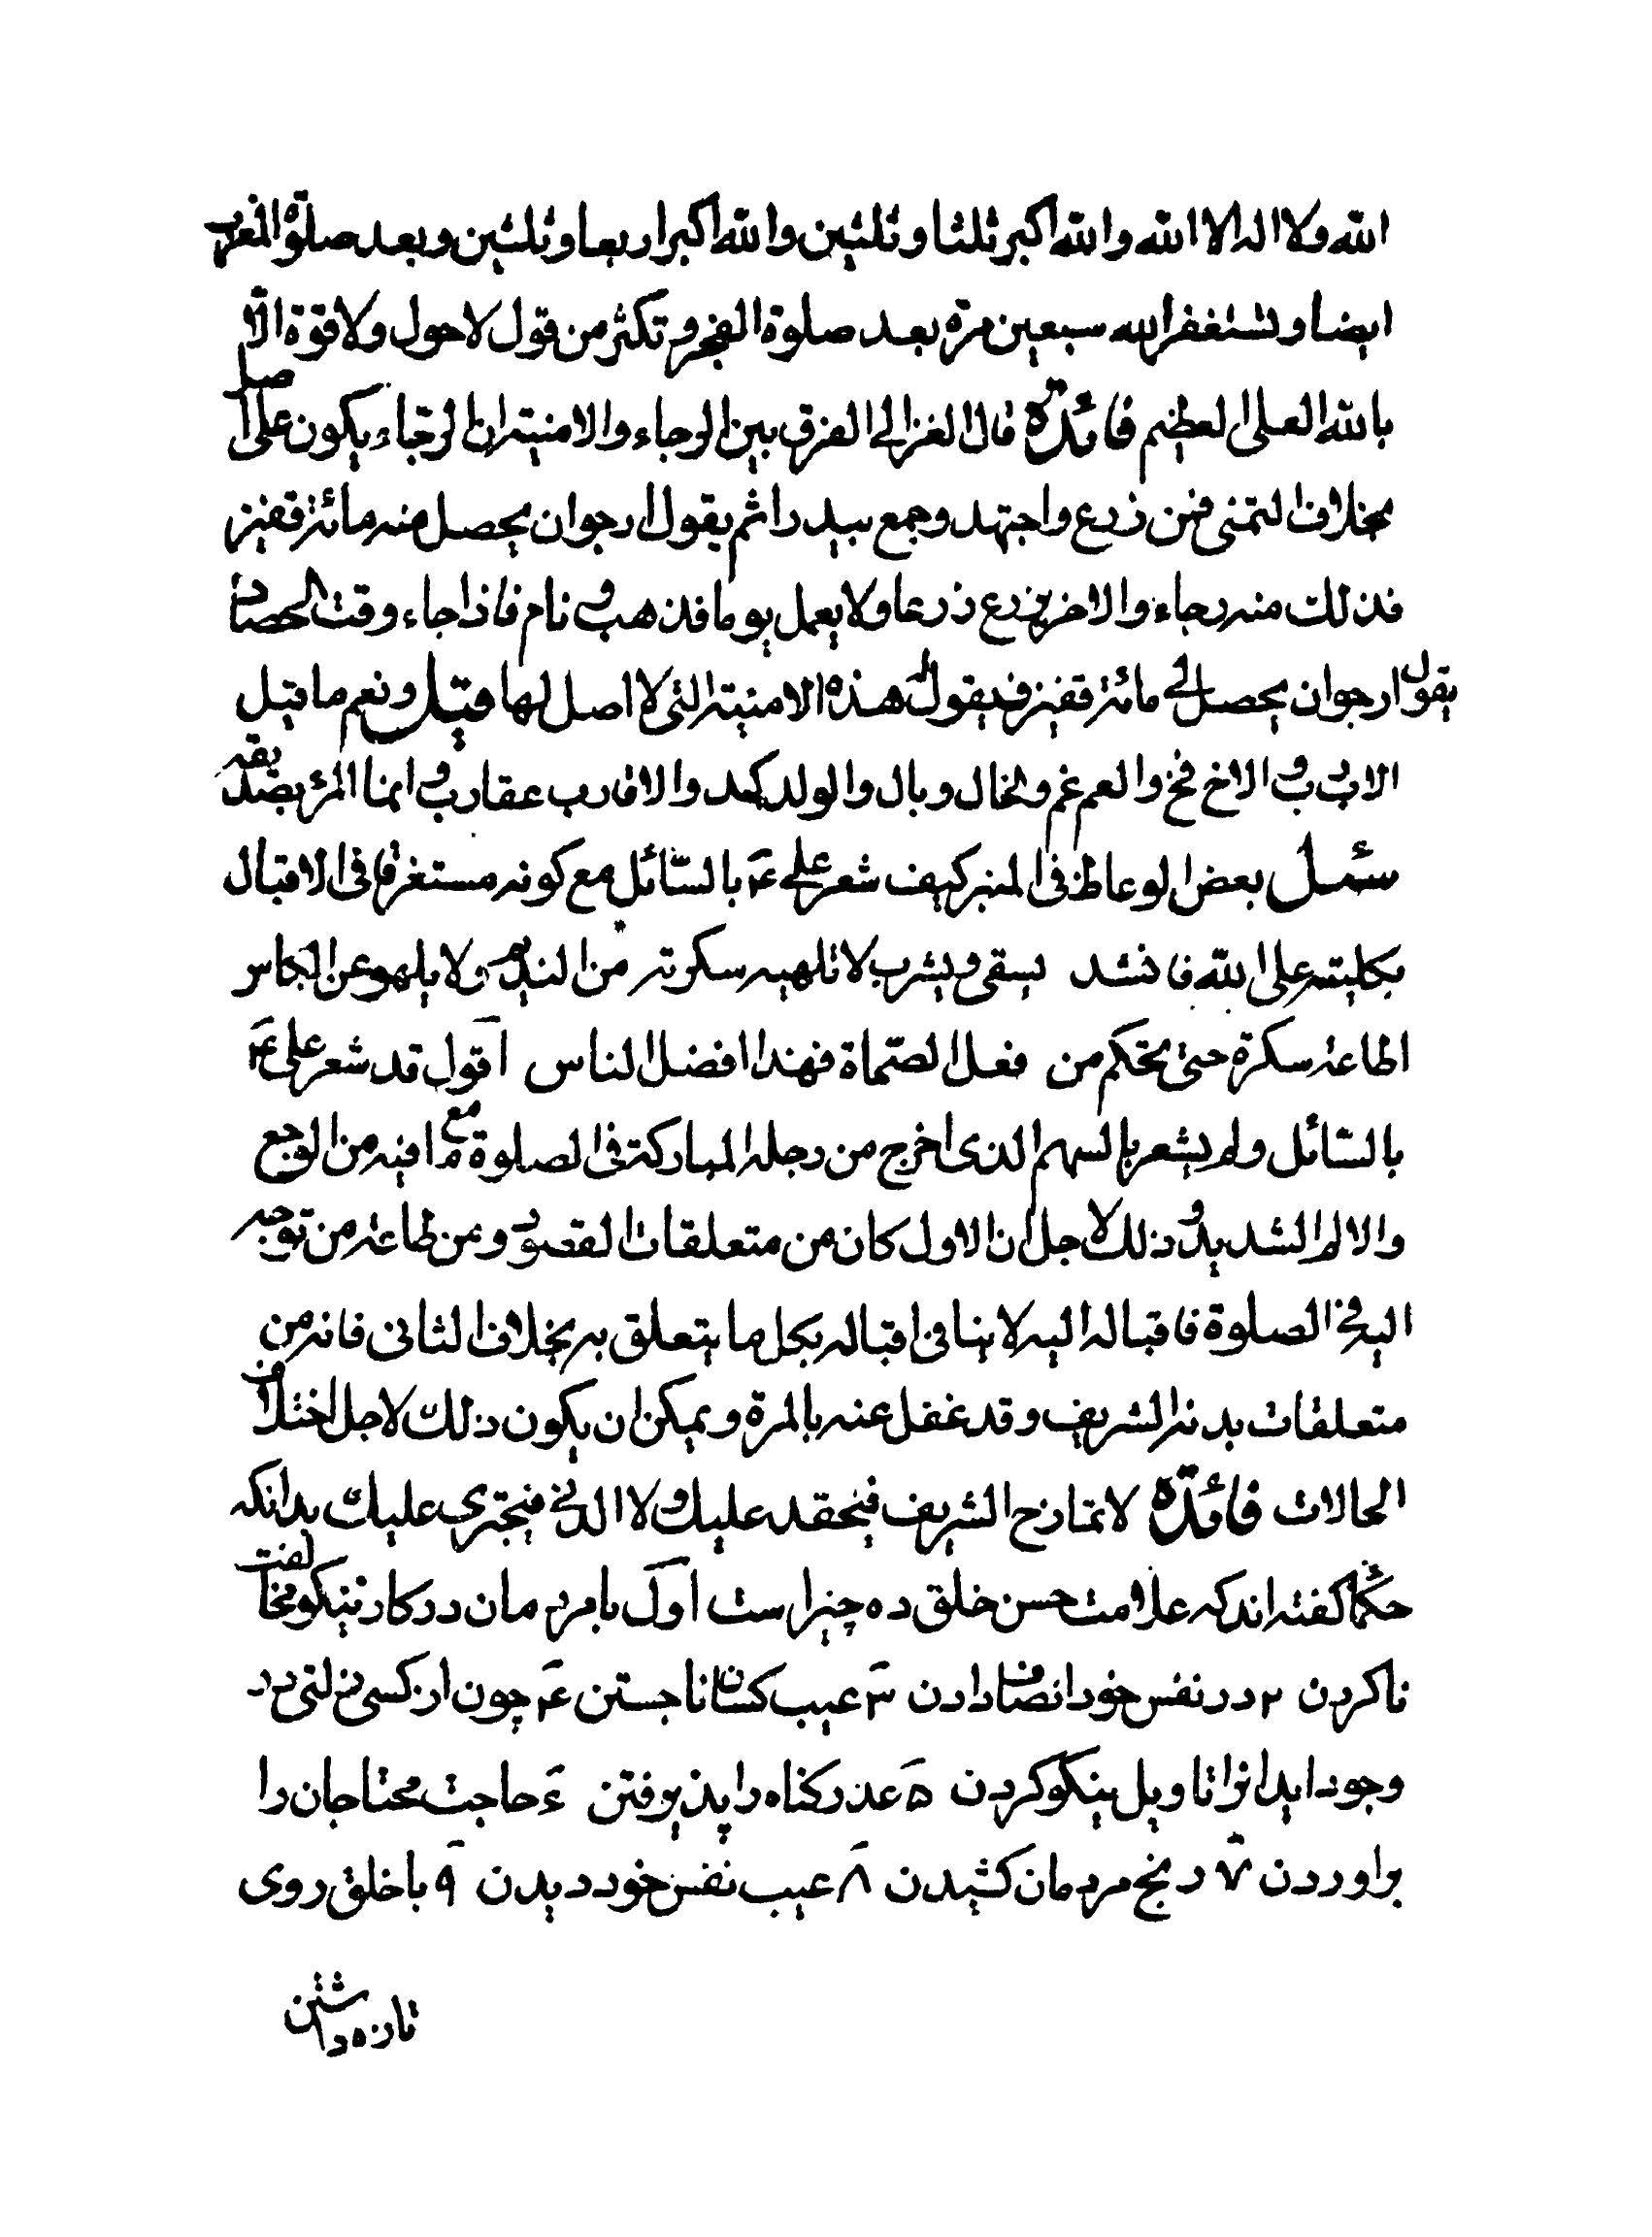 الله ولا اله الا الله والله اكبر ثلثا وثلثين والله اكبر اربعا وثلثين وبعد صلوة المغرب
ايضا وتستغفر الله سبعين مرة بعد صلوة الفجر وتكثر من قول لا حول ولا قوة الا
بالله العلى العظيم فائدة قال الغزالى الفرق بين الرجاء والامنية ان الرجاء يكون على اصل
بخلاف التمنى فمن زرع واجتهد وجمع بيدرا ثم يقول ارجو ان يحصل منه مائة قفيز
فذلك منه رجاء والاخر يزرع زرعا ولا يعمل يوما فذهب و نام فاذا جاء وقت الحصاد
يقول ارجو ان يحصل لى مائة قفيز فيقول له هذه الامنية التى لا اصل لها قيل ونعم ما قيل
الاب رب و الاخ فخ والعم غم والخال وبال والولد كمد والاقارب عقارب و انما المرء بصديقه
سئل بعض الوعاظ فى المنبر كيف شعر على ع۴ بالسّائل مع كونه مستغرقا فى الاقبال
بكليته على الله فانشد يسقى ويشرب لا تلهيه سكرته من النديم ولا يلهو عن الكاس
اطاعه سكره حتى تحكم من فعل الصّحاة فهذا افضل الناس اقول قد شعر على ع۴
بالسّائل ولم يشعر بالسهم الذى اخرج من رجله المباركة فى الصلوة مع ما فيه من الوجع
والالم الشديد و ذلك لاجل ان الاول كان من متعلقات القصوى ومن طاعة من توجه
اليه فى الصلوة فاقباله اليه لا ينافى اقباله بكل ما يتعلق به بخلاف الثانى فانه من
متعلقات بدنه الشريف وقد غفل عنه بالمرة ويمكن ان يكون ذلك لاجل اختلاف
الحالات فائدة لا تمازح الشريف فيحقد عليك ولا الدنى فيجترى عليك بدانكه
حكما كفته اند كه علامت حسن خلق ده چيز است اول با مردمان در كار نيكو مخالفت
ناكردن ۲ در نفس خود انصاف دادن ۳ عيب كسان ناجستن ۴ چون از كسى زلتى در
وجود ايد انرا تاويل نيكو كردن ۵ عذر كناه را پذيرفتن ۶ حاجت محتاجان را
براوردن ۷ رنج مردمان كشيدن ۸ عيب نفس خود ديدن ۹ با خلق روى
تازه داشتن